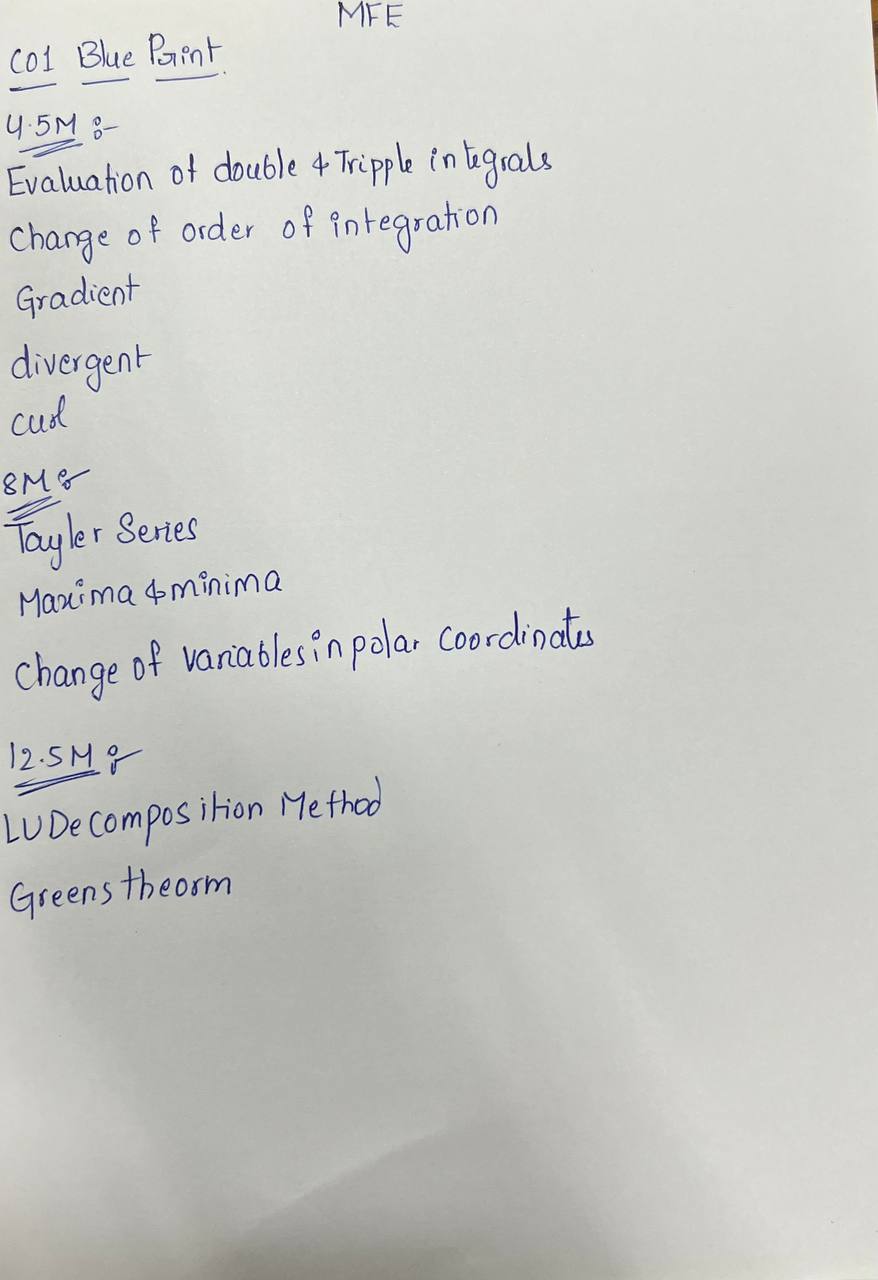 MFE
CO1 Blue Print.
4.5M :-
Evaluation of double & Tripple integrals
Change of order of integration
Gradient
divergent
curl
8M :-
Tayler Series
Maxima & minima
Change of variables in polar coordinates
12.5M :-
LU Decomposition Method
Greens theorm